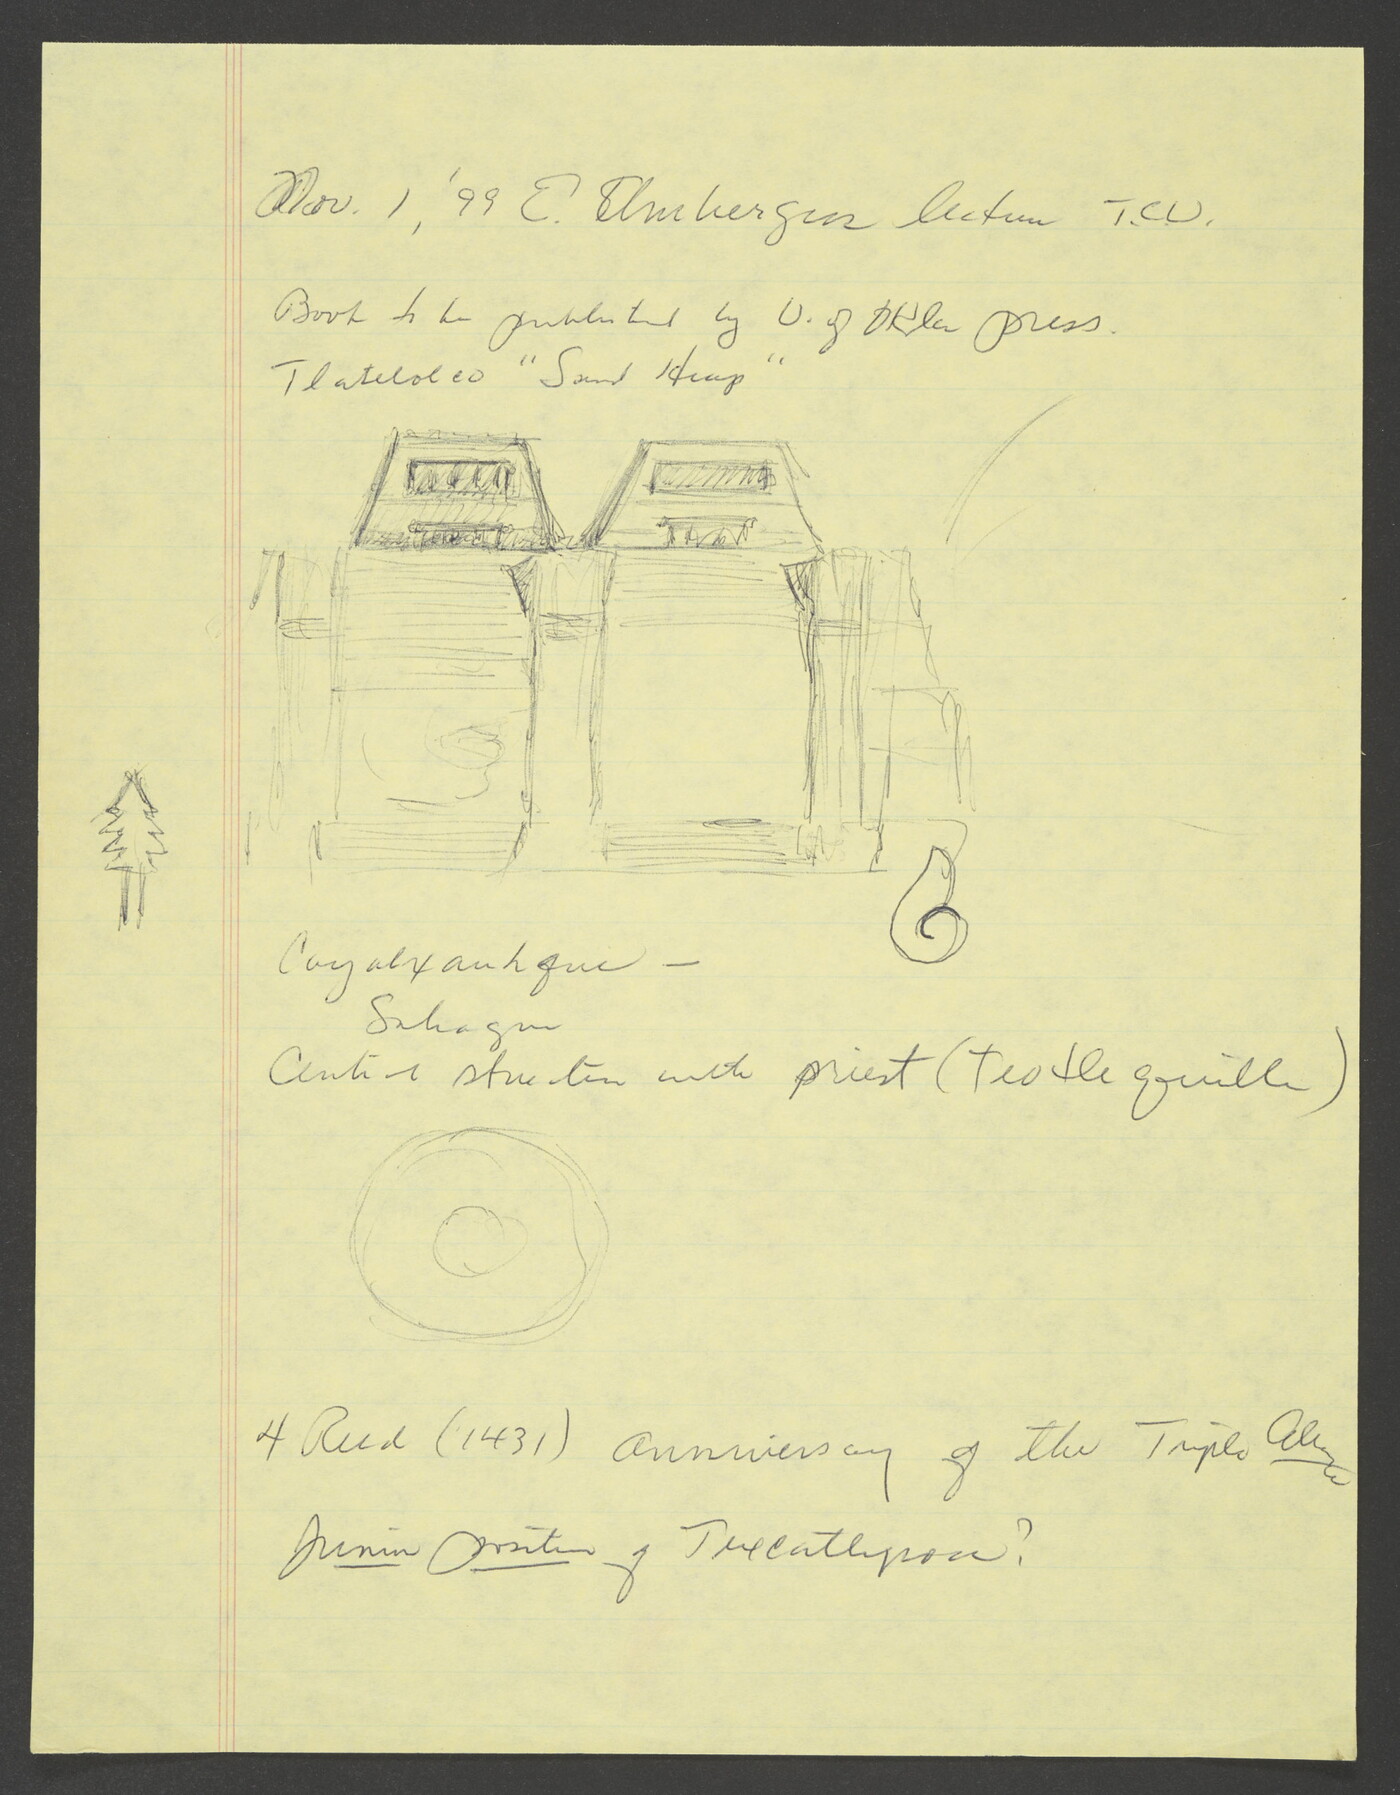 Nov. 1, '99 E. lecture T.C.U.
Book to be published by U. of Okla press.
Tlatelolco "Sand Heap"
Coyalxauhque —
Sahagun
Central structure with priest (
4 Reed (1431) anniversary of the Triple Alliance
Junior position of ?